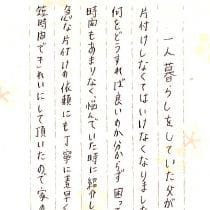 一人暮らしをしていた父が
片付けしなくてはいけなくなりまし
何をどうすれば良いのか分からず困って
時間もあまりなく、悩んでいた時に紹介し
急な片付けの依頼にも丁寧に素早く
短時間できれいにして頂いたので家